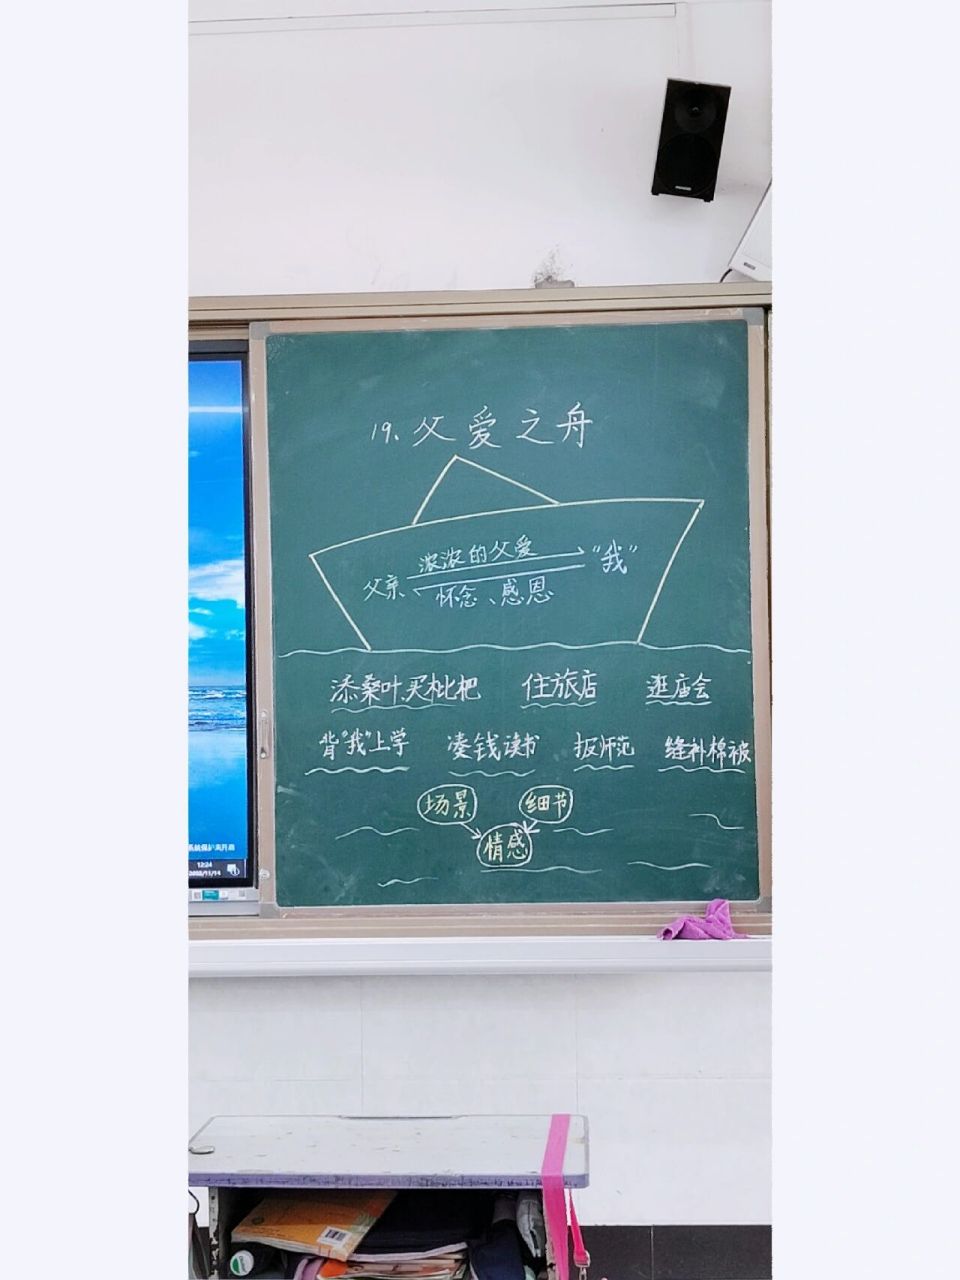 19、父爱之舟
浓浓的父爱
父亲 “我”
怀念、感恩
添桑叶买枇杷 住旅店 逛庙会
背“我”上学 凑钱读书 报师范 缝补棉被
场景 细节
情感
系统保护未开启
12:24
2022/11/14